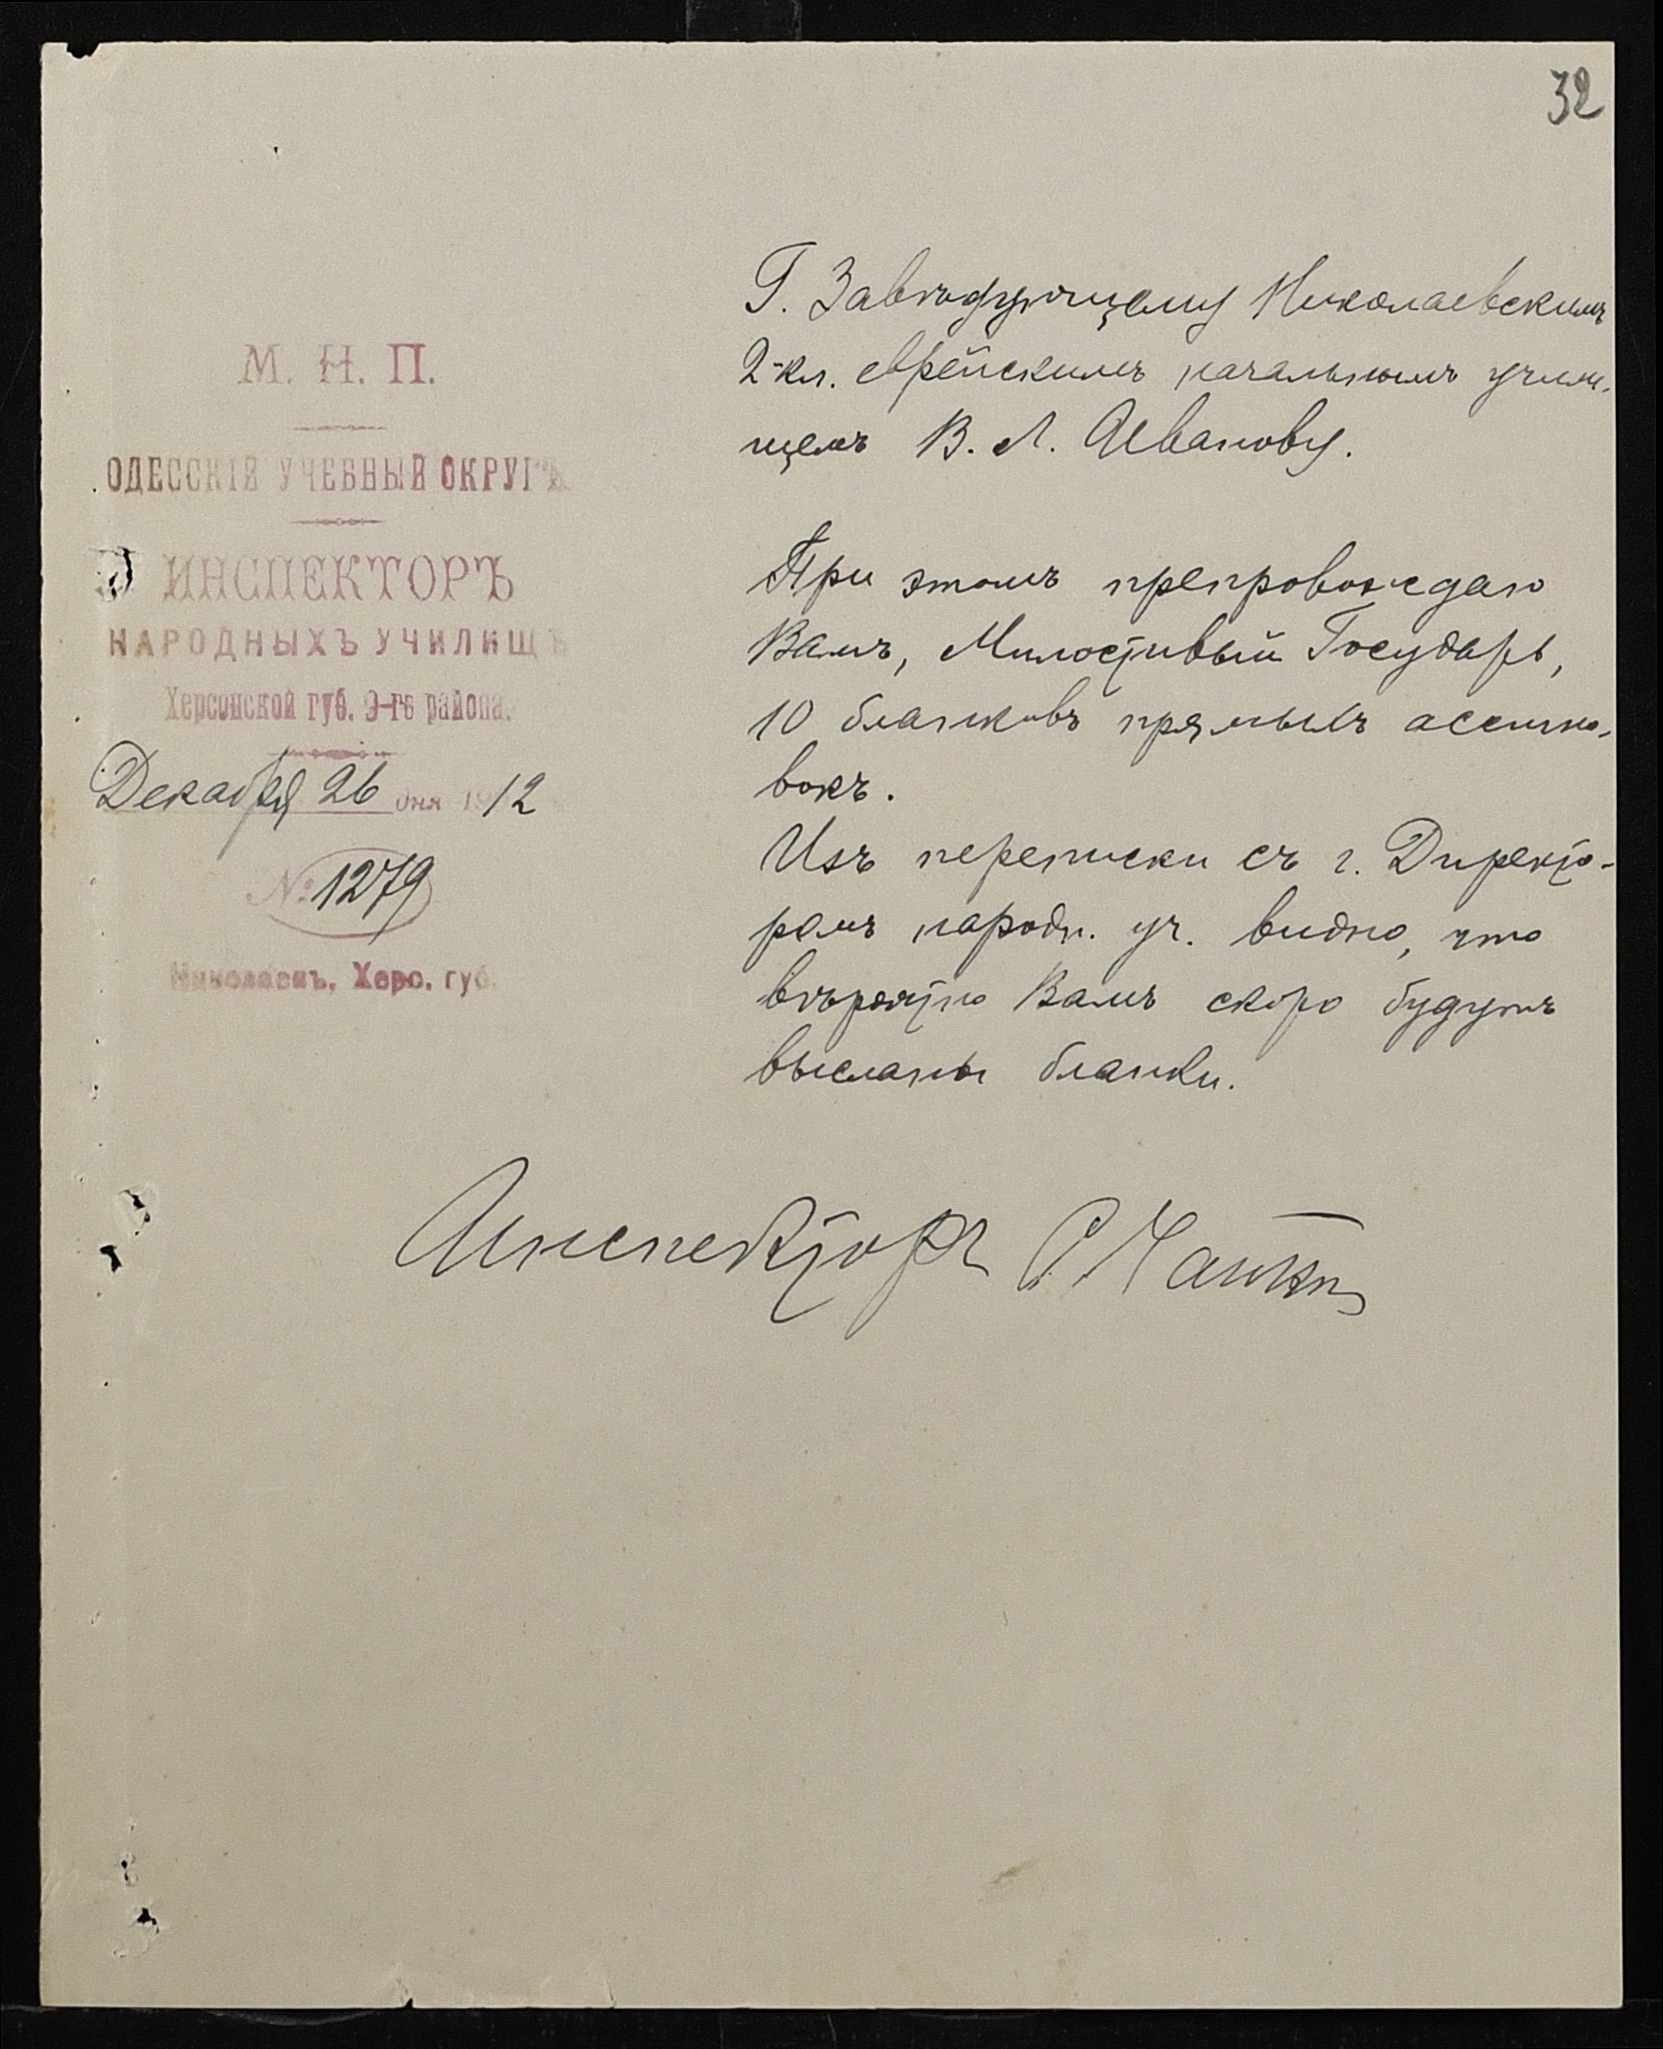 32
М. Н. П.
ОДЕССКІЙ УЧЕБНЫЙ ОКРУГЪ
ИНСПЕКТОРЪ
НАРОДНЫХЪ УЧИЛИЩЪ
Херсонской губ. 9-го района.
Декабря 26 дня 1912
№ 1279
Николаевъ, Херс. губ.
Г. Завѣдующему Николаевскимъ
2-кл. еврейскимъ начальнымъ учили-
щемъ В. Л. Иванову.
При этомъ препровождаю
Вамъ, Милостивый Государь,
10 бланковъ прямыхъ ассигно-
вокъ.
Изъ переписки съ г. Директо-
ромъ народн. уч. видно, что
вѣроятно Вамъ скоро будутъ
высланы бланки.
Инспекторъ